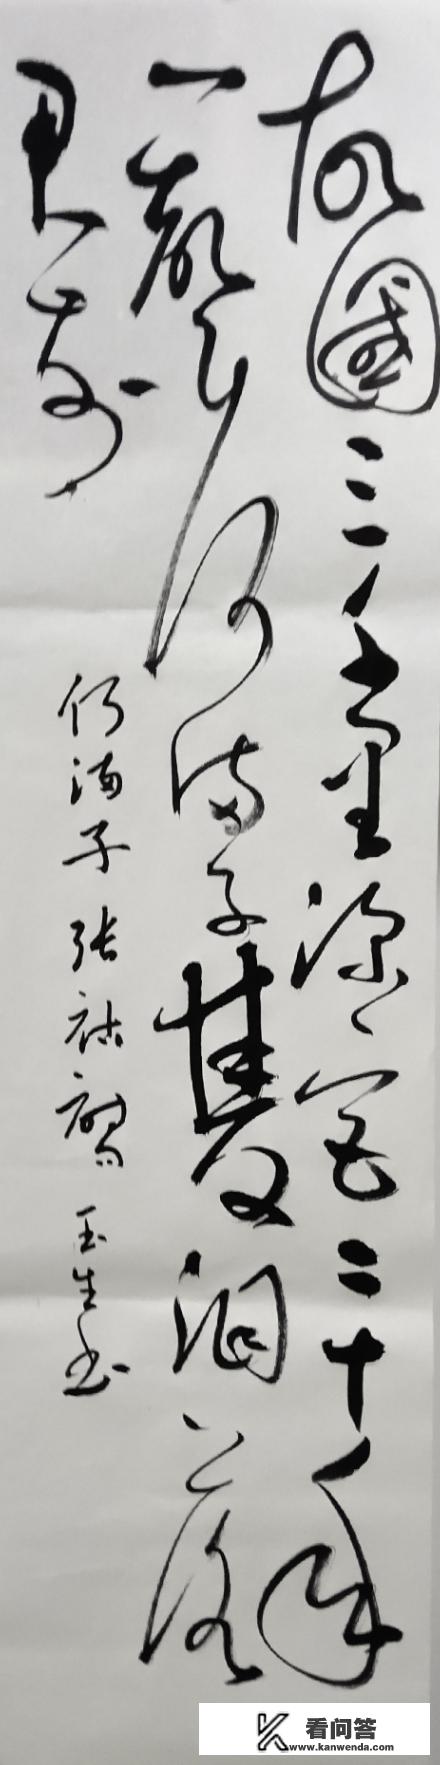 故國三千里深宮二十年
一聲何满子雙泪落
君前
何满子 张祜 玉生书
看问答
www.kanwenda.com